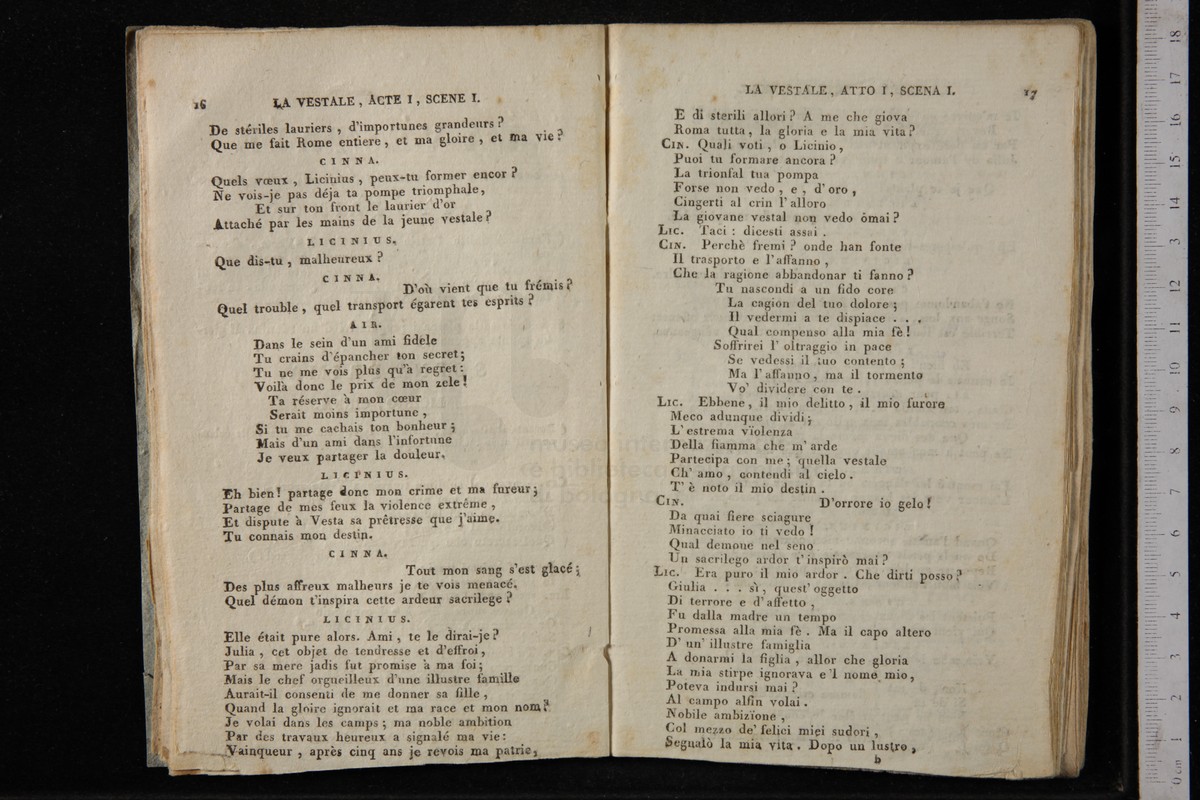 16
LA VESTALE, ACTE I, SCENE I.
De stériles lauriers, d'importunes grandeurs?
Que me fait Rome entiere, et ma gloire, et ma vie?
CINNA.
Quels vœux, Licinius, peux-tu former encor?
Ne vois-je pas déja ta pompe triomphale,
Et sur ton front le laurier d'or
Attaché par les mains de la jeune vestale?
LICINIUS.
Que dis-tu, malheureux?
CINNA.
D'où vient que tu frémis?
Quel trouble, quel transport égarent tes esprits?
AIR.
Dans le sein d'un ami fidèle
Tu crains d'épancher ton secret;
Tu ne me vois plus qu'à regret:
Voilà donc le prix de mon zele!
Ta réserve à mon cœur
Serait moins importune,
Si tu me cachais ton bonheur;
Mais d'un ami dans l'infortune
Je veux partager la douleur.
LICINIUS.
Eh bien! partage donc mon crime et ma fureur;
Partage de mes feux la violence extréme,
Et dispute à Vesta sa prêtresse que j'aime.
Tu connais mon destin.
CINNA.
Tout mon sang s'est glacé;
Des plus affreux malheurs je te vois menacé.
Quel démon t'inspira cette ardeur sacrilege?
LICINIUS.
Elle était pure alors. Ami, te le dirai-je?
Julia, cet objet de tendresse et d'effroi,
Par sa mere jadis fut promise à ma foi;
Mais le chef orgueilleux d'une illustre famille
Aurait-il consenti de me donner sa fille,
Quand la gloire ignorait et ma race et mon nom?
Je volai dans les camps; ma noble ambition
Par des travaux heureux a signalé ma vie:
Vainqueur, après cinq ans je revois ma patrie,
LA VESTALE, ATTO I, SCENA I.
17
E di sterili allori? A me che giova
Roma tutta, la gloria e la mia vita?
CIN. Quali voti, o Licinio,
Puoi tu formare ancora?
La trionfal tua pompa
Forse non vedo, e, d'oro,
Cingerti al crin l'alloro
La giovane vestal non vedo òmai?
LIC. Taci: dicesti assai.
CIN. Perchè fremi? onde han fonte
Il trasporto e l'affanno,
Che la ragione abbandonar ti fanno?
Tu nascondi a un fido core
La cagion del tuo dolore;
Il vedermi a te dispiace...
Qual compenso alla mia fè!
Soffrirei l'oltraggio in pace
Se vedessi il tuo contento;
Ma l'affanno, ma il tormento
Vo' dividere con te.
LIC. Ebbene, il mio delitto, il mio furore
Meco adunque dividi;
L'estrema vïolenza
Della fiamma che m'arde
Partecipa con me; quella vestale
Ch'amo, contendi al cielo.
T'è noto il mio destin.
CIN. D'orrore io gelo!
Da quai fiere sciagure
Minacciato io ti vedo!
Qual demone nel seno
Un sacrilego ardor t'inspirò mai?
LIC. Era puro il mio ardor. Che dirti posso?
Giulia... sì, quest'oggetto
Di terrore e d'affetto,
Fu dalla madre un tempo
Promessa alla mia fè. Ma il capo altero
D'un'illustre famiglia
A donarmi la figlia, allor che gloria
La mia stirpe ignorava e'l nome mio,
Poteva indursi mai?
Al campo alfin volai.
Nobile ambizïone,
Col mezzo de' felici miei sudori,
Segnalò la mia vita. Dopo un lustro,
b